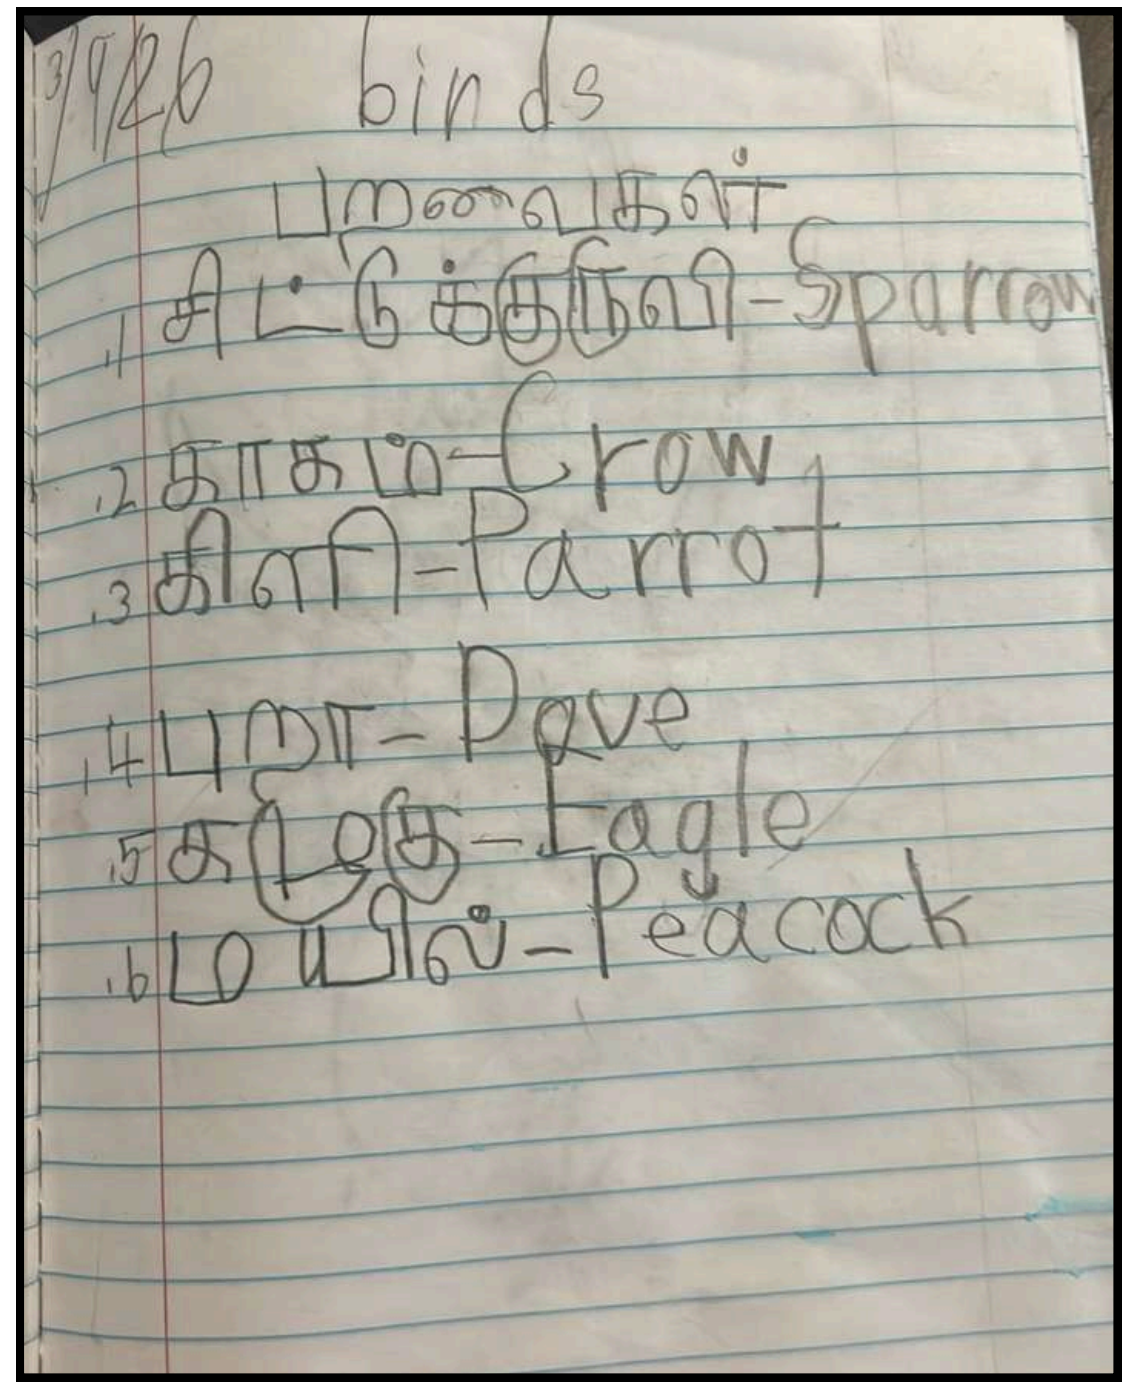 3/9/26 birds
பறவைகள்
.1 சிட்டுக்குருவி-Sparrow
.2 காகம்-Crow
.3 கிளி-Parrot
.4 புறா-Dove
.5 கழுகு-Eagle
.6 மயில்-Peacock